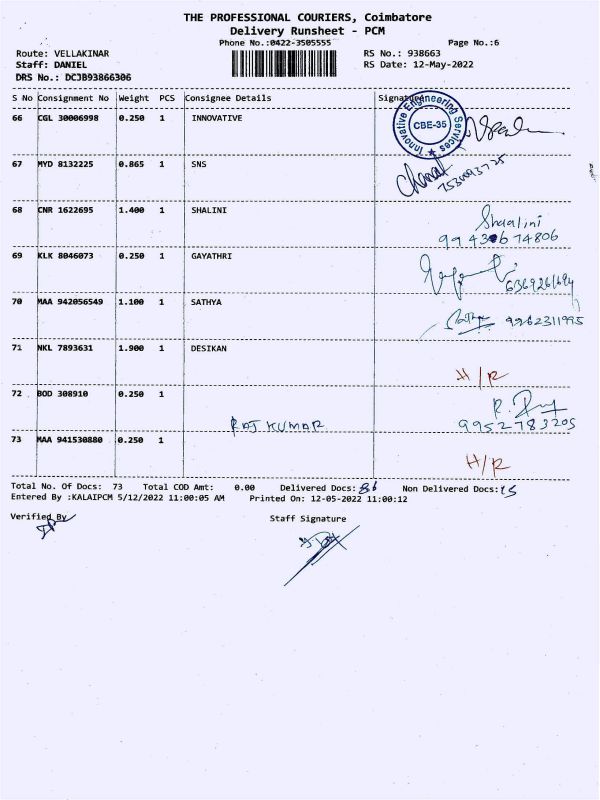 THE PROFESSIONAL COURIERS, Coimbatore
Delivery Runsheet - PCM
Phone No.:0422-3505555 Page No.:6
Route: VELLAKINAR RS No.: 938663
Staff: DANIEL RS Date: 12-May-2022
DRS No.: DCJB93866306
S No Consignment No Weight PCS Consignee Details Signature
66 CGL 30006998 0.250 1 INNOVATIVE
Innovative Engineering Services
CBE-35
67 MYD 8132225 0.865 1 SNS
68 CNR 1622695 1.400 1 SHALINI
Shaalini
69 KLK 8046073 0.250 1 GAYATHRI
70 MAA 942056549 1.100 1 SATHYA
9962311995
71 NKL 7893631 1.900 1 DESIKAN
H/R
72 BOD 308910 0.250 1
RAJ KUMAR 9952783205
73 MAA 941530880 0.250 1
H/R
Total No. Of Docs: 73 Total COD Amt: 0.00 Delivered Docs: Non Delivered Docs:
Entered By :KALAIPCM 5/12/2022 11:00:05 AM Printed On: 12-05-2022 11:00:12
Verified By Staff Signature